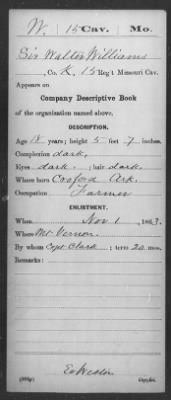 W. | 15 Cav. | Mo.
Sir Walter Williams
, Co. K, 15 Reg't Missouri Cav.
Appears on
Company Descriptive Book
of the organization named above.
DESCRIPTION.
Age 18 years; height 5 feet 7 inches.
Complexion dark.
Eyes dark; hair dark.
Where born Croford Ark.
Occupation Farmer
ENLISTMENT.
When Nov 1, 1863.
Where Mt Vernon.
By whom Capt Clark; term 20 mos.
Remarks:
Copyist.